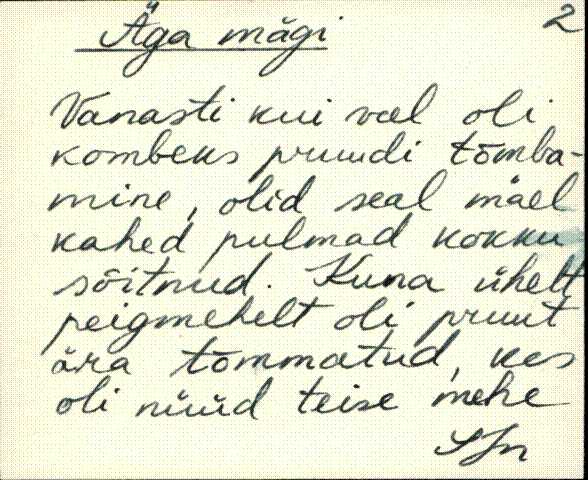 Äga mägi
2
Vanasti kui veel oli
kombeks pruudi tõmba-
mine, olid seal mäel
kahed pulmad kokku
sõitnud. Kuna ühelt
peigmehelt oli pruut
ära tõmmatud, kes
oli nüüd teise mehe